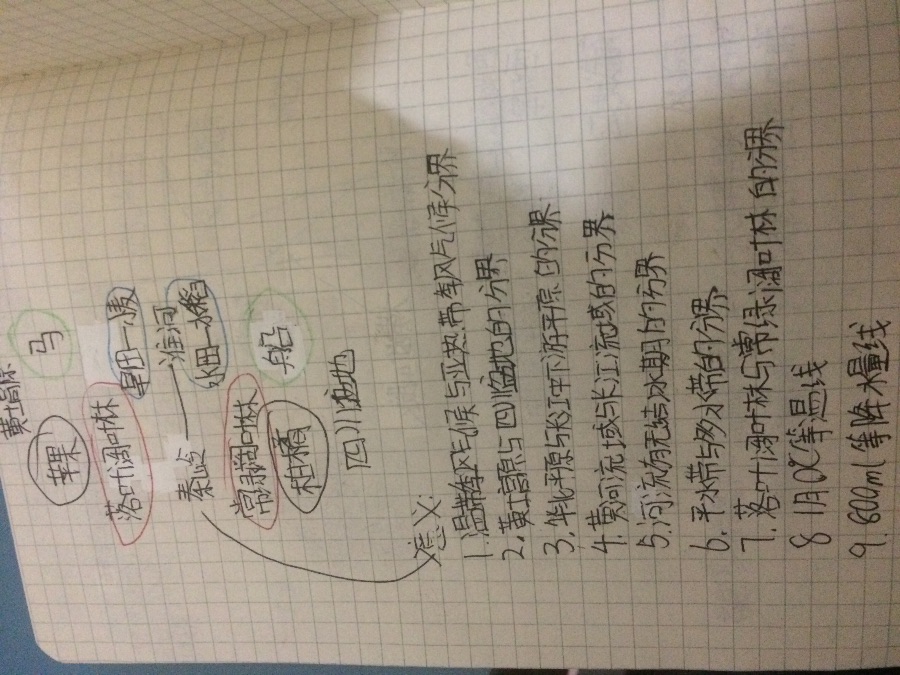 黄土高原
苹果 马
落叶阔叶林 旱田—小麦
秦岭——淮河
常绿阔叶林 水田—水稻
柑橘 船
四川盆地
意义:
1.温带季风气候与亚热带季风气候分界
2.黄土高原与四川盆地的分界
3.华北平原与长江中下游平原的分界
4.黄河流域与长江流域的分界
5.河流有无结冰期的分界
6.平水带与多水带的分界
7.落叶阔叶林与常绿阔叶林的分界
8 1月0℃等温线
9.800ml等降水量线